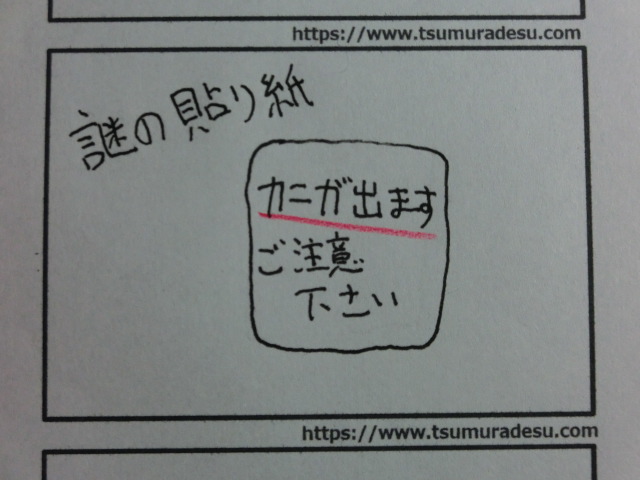 https://www.tsumuradesu.com
謎の貼り紙
カニが出ます
ご注意
下さい
https://www.tsumuradesu.com